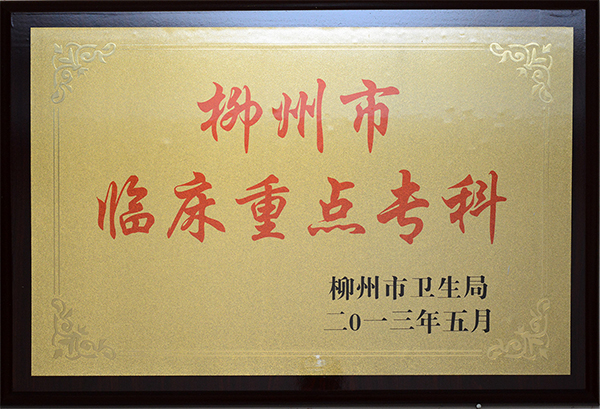 柳州市
临床重点专科
柳州市卫生局
二0一三年五月